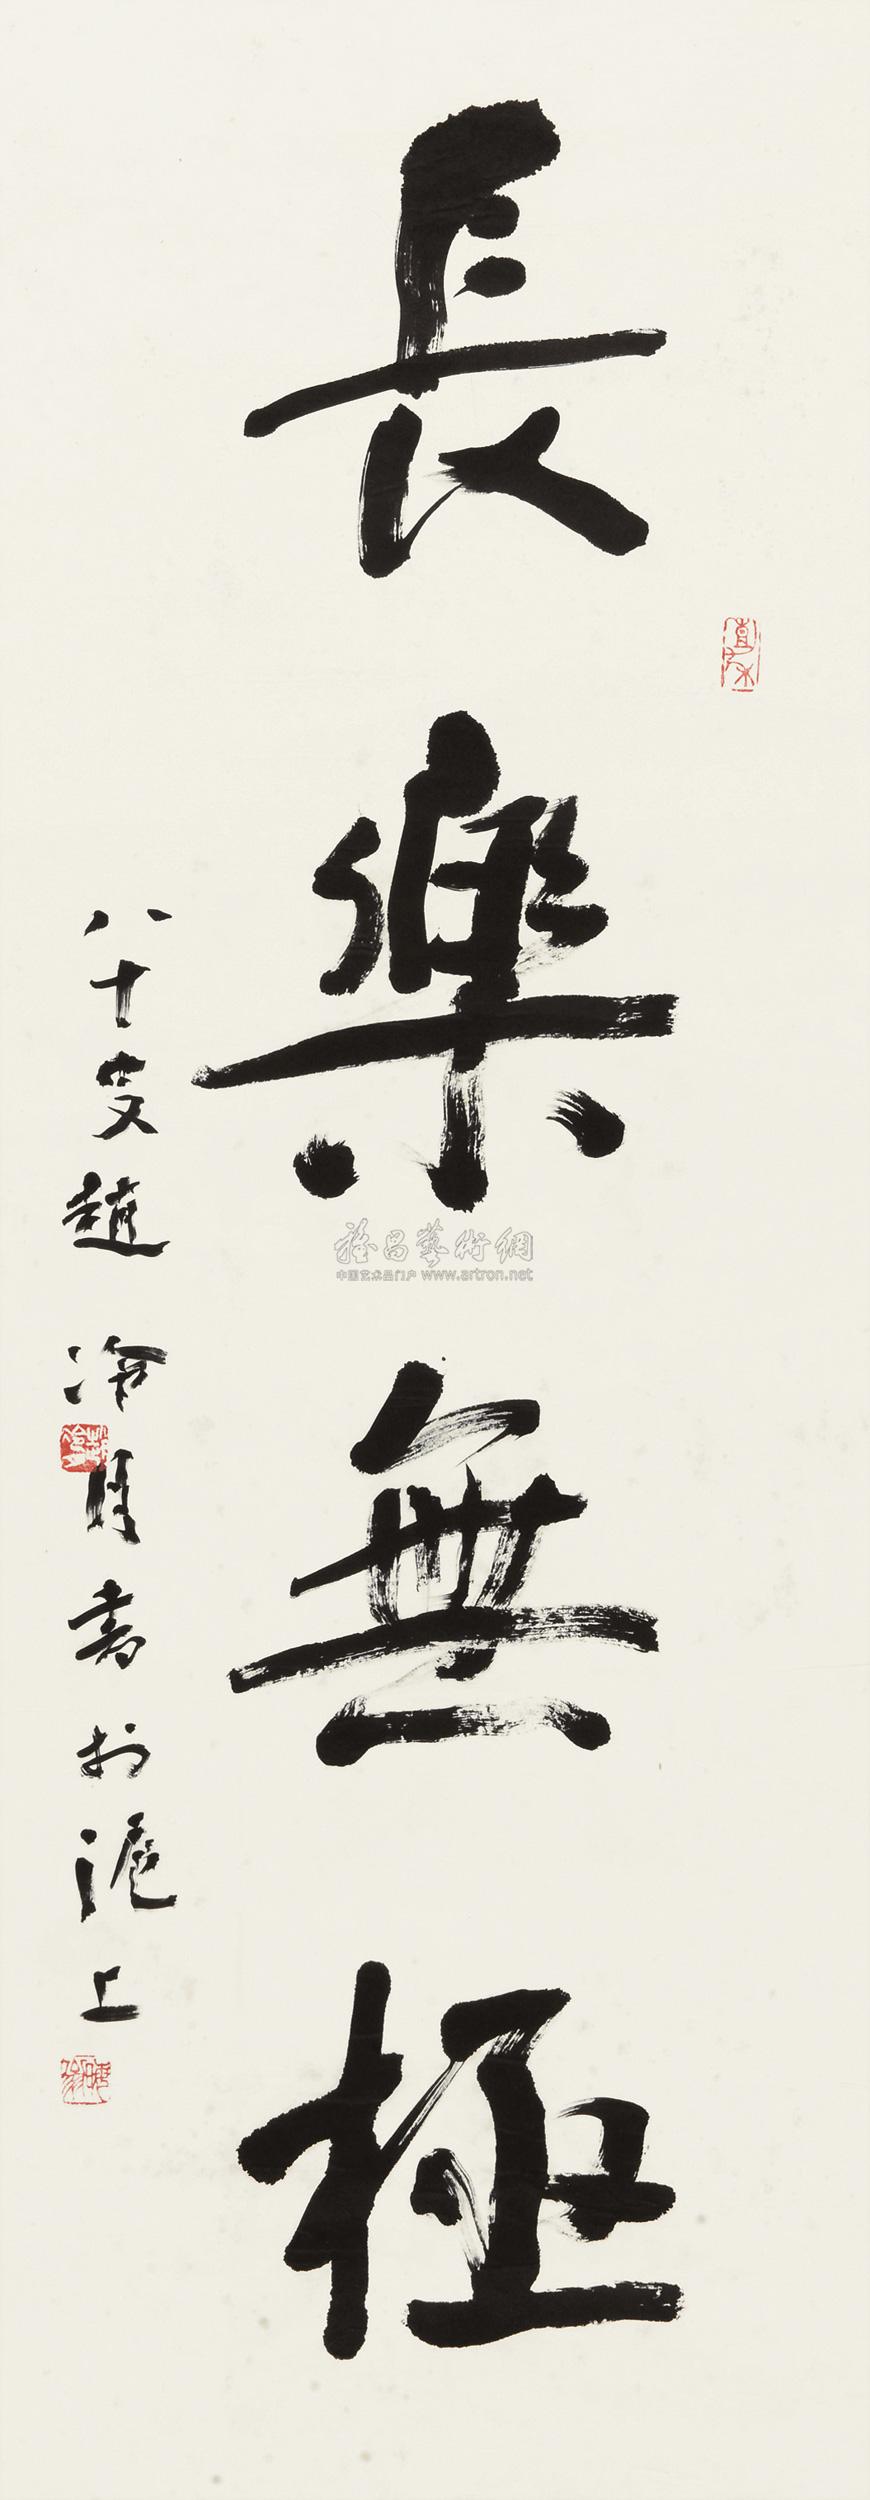 長樂無極
八十叟趙冷月書於滬上
雅昌藝術網
中国艺术品门户 www.artron.net